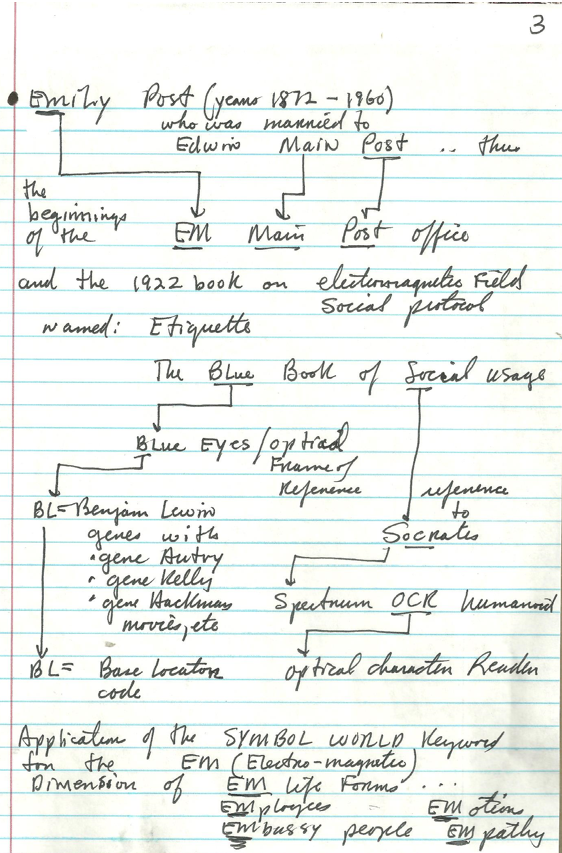 3
• Emily Post (years 1872 - 1960)
who was married to
Edwin Main Post .. thus
the
beginnings
of the EM Main Post office
and the 1922 book on electromagnetic Field
Social protocol
named: Etiquette
The BLue Book of Social usage
BLue Eyes / optical
Frame of
Reference
BL= Benjam Lewin
genes with
• gene Autry
• gene Kelly
• gene Hackman
movies, etc
reference
to
Socrates
Spectrum OCR humanoid
BL= Base Locator
code
optical character Reader
Application of the SYMBOL WORLD Keyword
for the EM (Electro-magnetic)
Dimension of EM Life Forms ....
EMployees EMotion
EMbassy people EMpathy